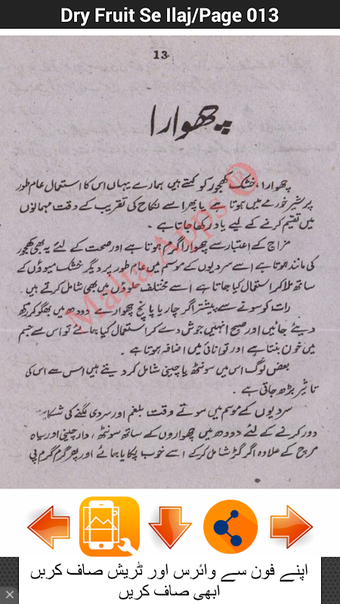 Dry Fruit Se Ilaj/Page 013
13
چھوارا
چھوارا، خشک کھجور کو کہتے ہیں ہمارے یہاں اس کا استعمال عام طور
پر شیر خورمے میں ہوتا ہے یا پھر اسے نکاح کی تقریب کے وقت مہمانوں
میں تقسیم کرنے کے لیے یاد رکھا جاتا ہے۔
مزاج کے اعتبار سے چھوارا گرم ہوتا ہے اور صحت کے لئے یہ بھی کھجور
کی مانند ہوتا ہے اسے سردیوں کے موسم میں عام طور پر دیگر خشک میوؤں کے
ساتھ ملا کر استعمال کیا جاتا ہے اسے مختلف حلوؤں میں بھی شامل کرتے ہیں۔
رات کو سونے سے پیشتر اگر چار یا پانچ چھوارے دودھ میں بھگو کر رکھ
دیئے جائیں اور صبح انہیں جوش دے کر استعمال کیا جائے تو اس سے جسم
میں خون بنتا ہے اور توانائی میں اضافہ ہوتا ہے۔
بعض لوگ اس میں سونٹھ یا چینی شامل کر دیتے ہیں اس سے اس کی
تاثیر بڑھ جاتی ہے۔
سردیوں کے موسم میں سوتے وقت بلغم اور سردی لگنے کی شکایت
دور کرنے کے لئے دودھ میں چھواروں کے ساتھ سونٹھ، دار چینی اور سیاہ
مرچ کے علاوہ اگر گڑ شامل کر کے اسے خوب پکایا جائے اور پھر گرم گرم پی
Malia Apps
اپنے فون سے وائرس اور ٹریش صاف کریں
ابھی صاف کریں